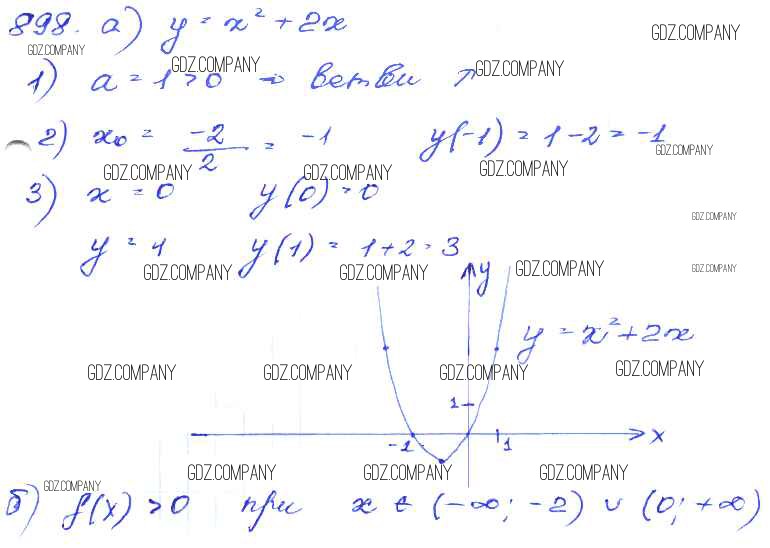 898. а) y = x² + 2x
GDZ.COMPANY
GDZ.COMPANY
1) a = 1 > 0 → ветви ↗
GDZ.COMPANY GDZ.COMPANY
2) x₀ = -2/2 = -1 y(-1) = 1 - 2 = -1
GDZ.COMPANY
GDZ.COMPANY GDZ.COMPANY GDZ.COMPANY
3) x = 0 y(0) = 0
GDZ.COMPANY
y = 1 y(1) = 1 + 2 = 3
GDZ.COMPANY GDZ.COMPANY GDZ.COMPANY GDZ.COMPANY
y
y = x² + 2x
GDZ.COMPANY GDZ.COMPANY GDZ.COMPANY GDZ.COMPANY
1
-1 1 x
GDZ.COMPANY GDZ.COMPANY GDZ.COMPANY
GDZ.COMPANY
б) f(x) > 0 при x ∈ (-∞; -2) ∪ (0; +∞)